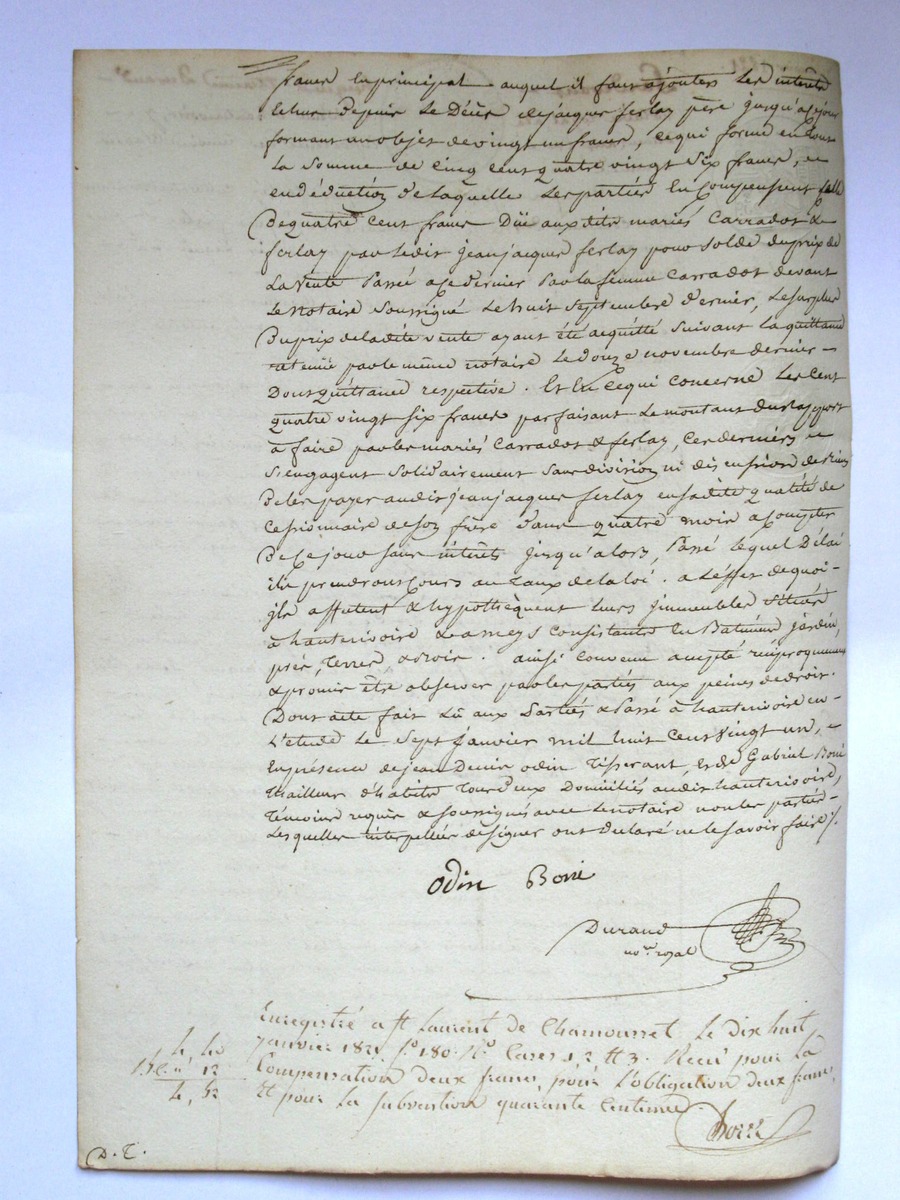 francs en principal auquel il faut ajouter les intérêts
échus depuis le Décès de jacques ferlay père jusqu'à ce jour
formant un objet de vingt un francs, ce qui forme en tout
la somme de cinq cent quatre vingt six francs, en
en déduction de laquelle les parties En Compensent celle
De quatre cent francs Düe auxdits mariés Carradot &
ferlay par ledit jean jacques ferlay pour solde du prix de
La vente Passé a ce dernier Par la femme Carradot devant
Le Notaire Soussigné Le huit Septembre Dernier, Le surplus
Du prix de la dite vente ayant été acquitté suivant la quittance
retenüe par le même notaire Le douze novembre dernier
Dont quittance respective. Et En ce qui concerne Les Cent
quatre vingt six francs parfaisant Le montant du rapport
à faire par les mariés Carradot & ferlay, Ces derniers
s'engagent solidairement sans division ni discussion de biens
De les payer audit jean jacques ferlay en sadite qualité de
Cessionnaire de son frère dans quatre mois a Compter
De Ce jour sans intérêts jusqu'alors, Passé lequel Délai
ils prendront Cours au taux de la loi. a L'effet de quoi
ils affectent & hypothèquent leurs jmmeubles situés
à hauterivoire & a meys consistants En Batiment jardin,
prés, Terres & bois. ainsi convenu accepté réciproquement
& promis être observer par les parties aux peines de droit.
Dont acte fait Lü aux Parties & Passé à hauterivoire en
L'étude Le sept janvier mil huit Cent vingt un,
En présence de jean Denis odin Tisserant, et de Gabriel Boni
Tailleur d'habits Tous deux Domiciliés audit hauterivoire,
Témoins requis & soussignés avec le notaire non les parties
Lesquelles interpellées de signer ont Déclaré ne le savoir faire ./.
Odin Boni
Durand
no.re royal
Enregistré a St Laurent de Chamousset le dix huit
janvier 1821 f.o 180 R.o Cases 1 2 & 3. Recu pour la
Compensation deux francs, pour l'obligation deux francs,
Et pour la subvention quarante Centimes
4, 40
12
4, 52
D. T.